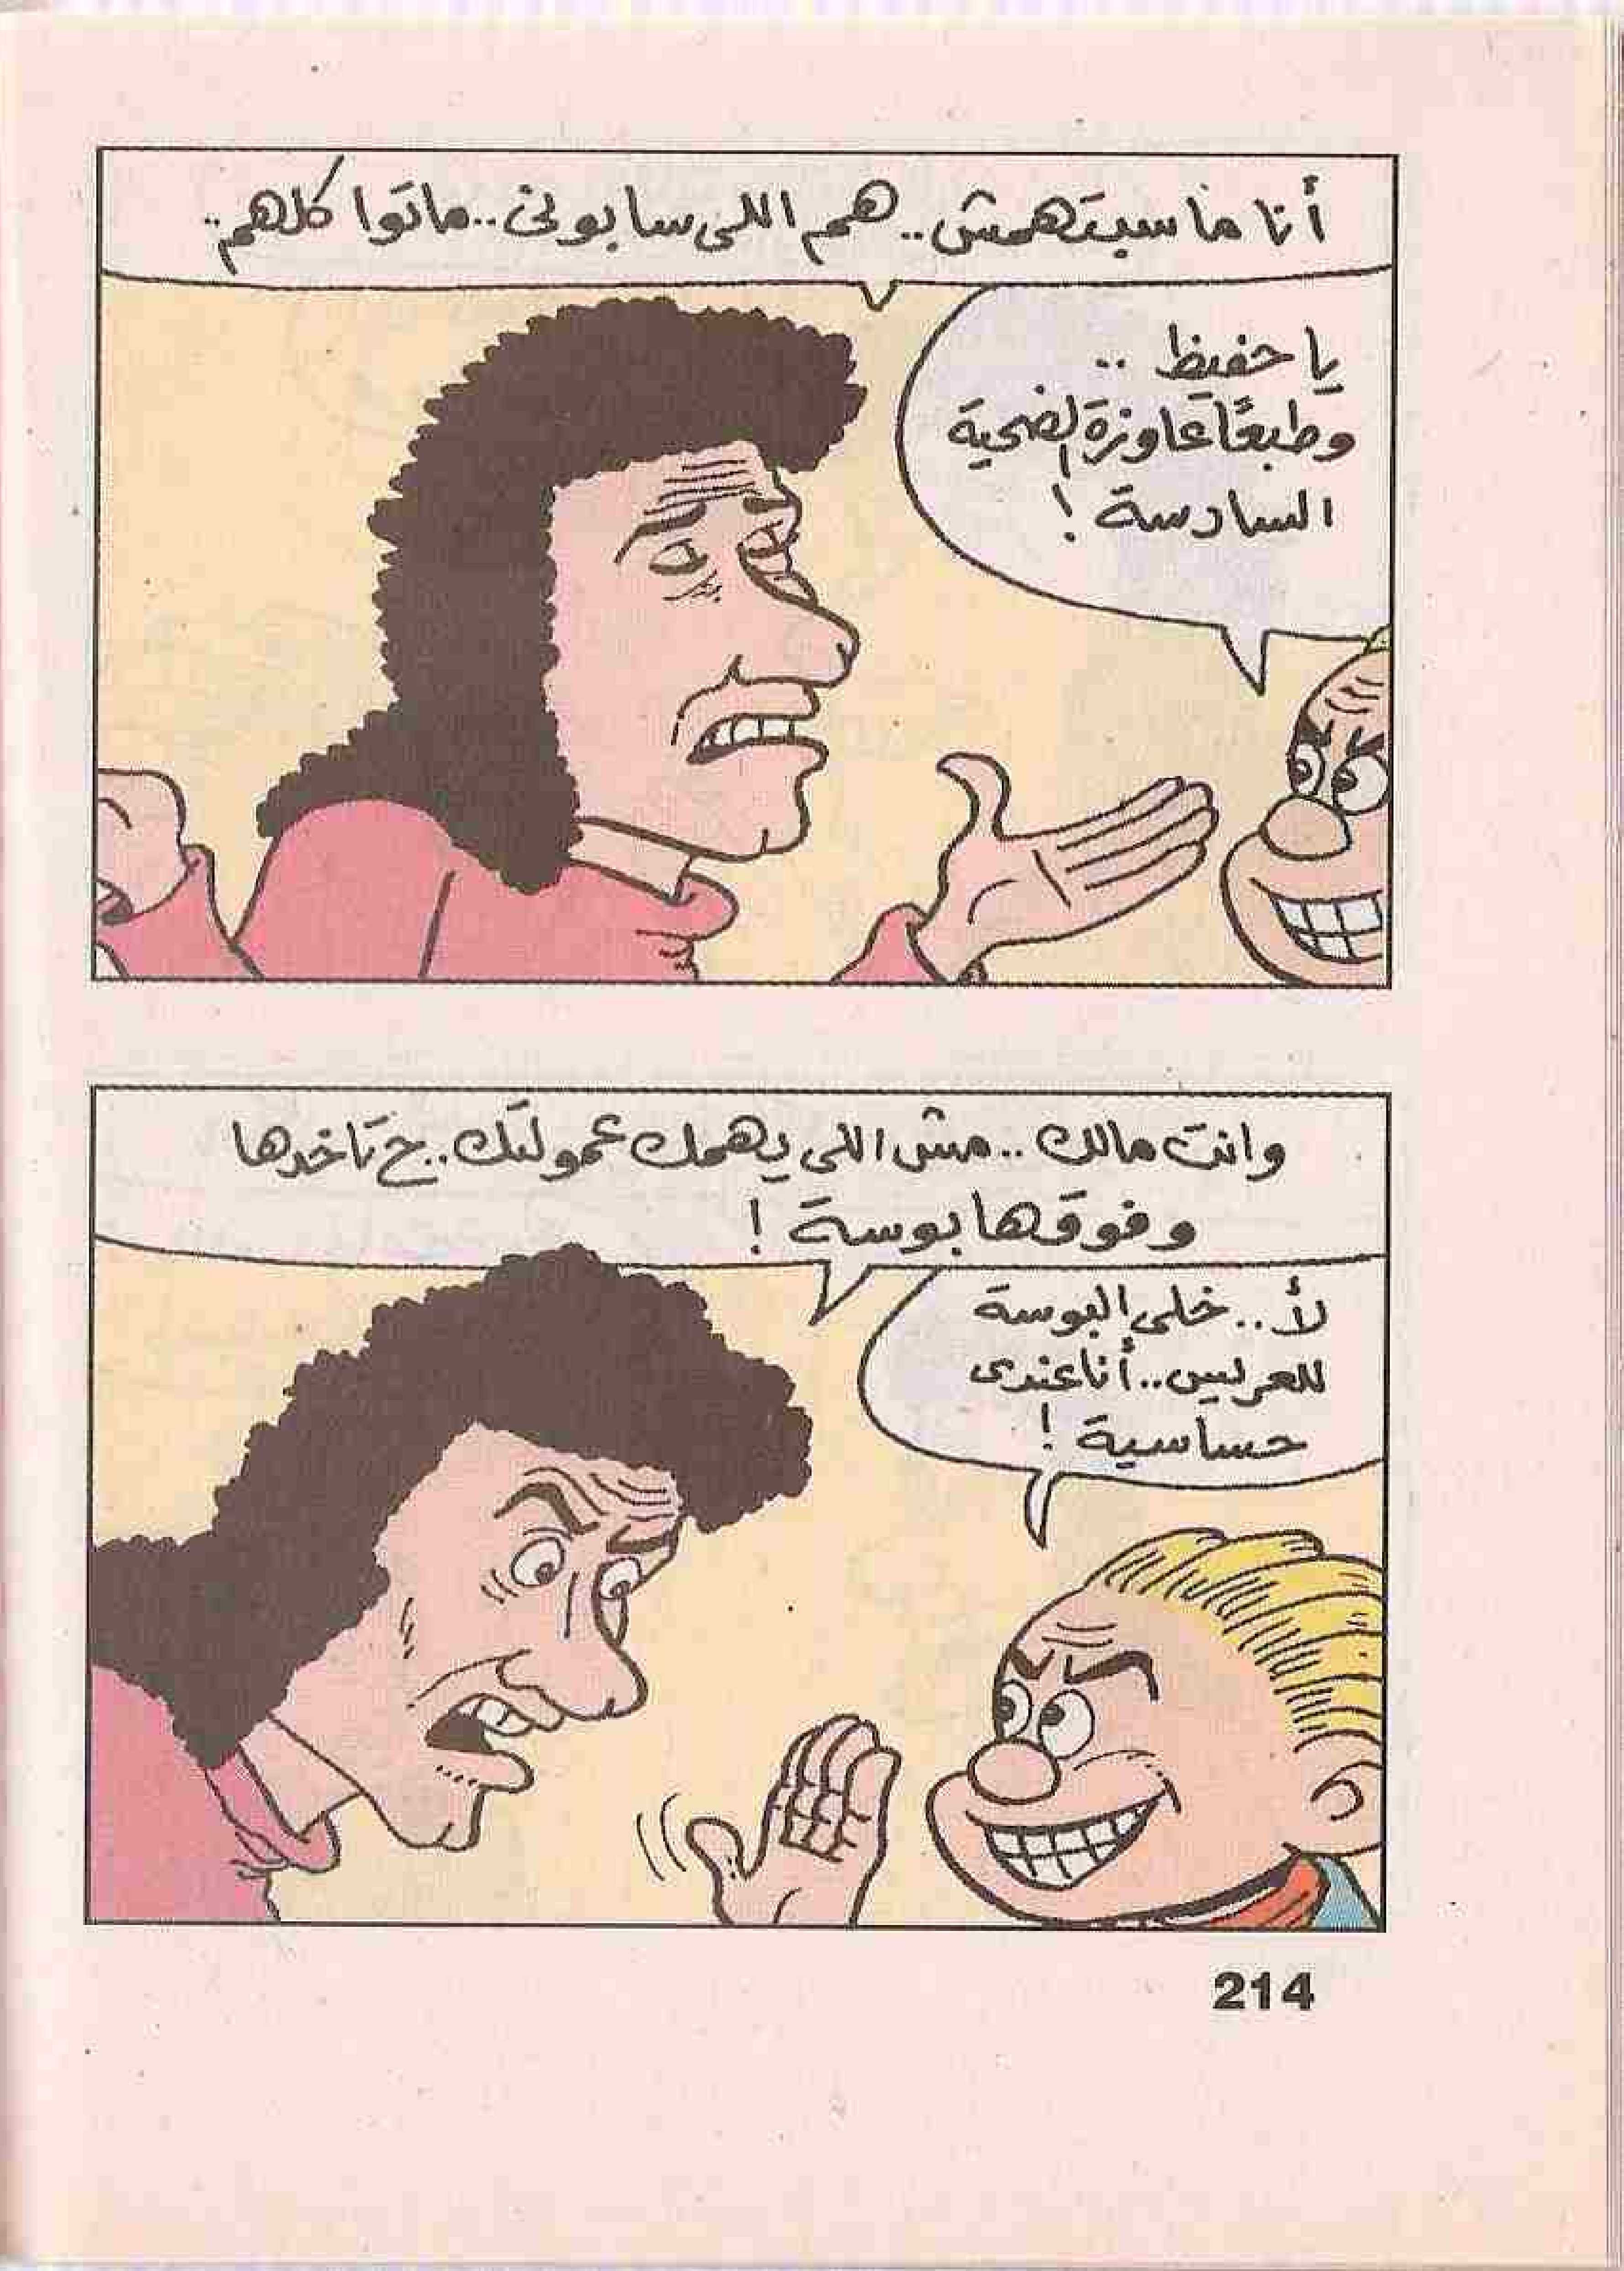 أنا ما سبتهمش.. هم اللى سابونى.. ماتوا كلهم..
يا حفيظ ..
وطبعًا عاوزة الضحية
السادسة !
وانت مالك.. مش اللى يهمك عمولتك.. ح تاخدها
وفوقها بوسة !
لأ.. خلى البوسة
للعريس.. أنا عندى
حساسية !
214